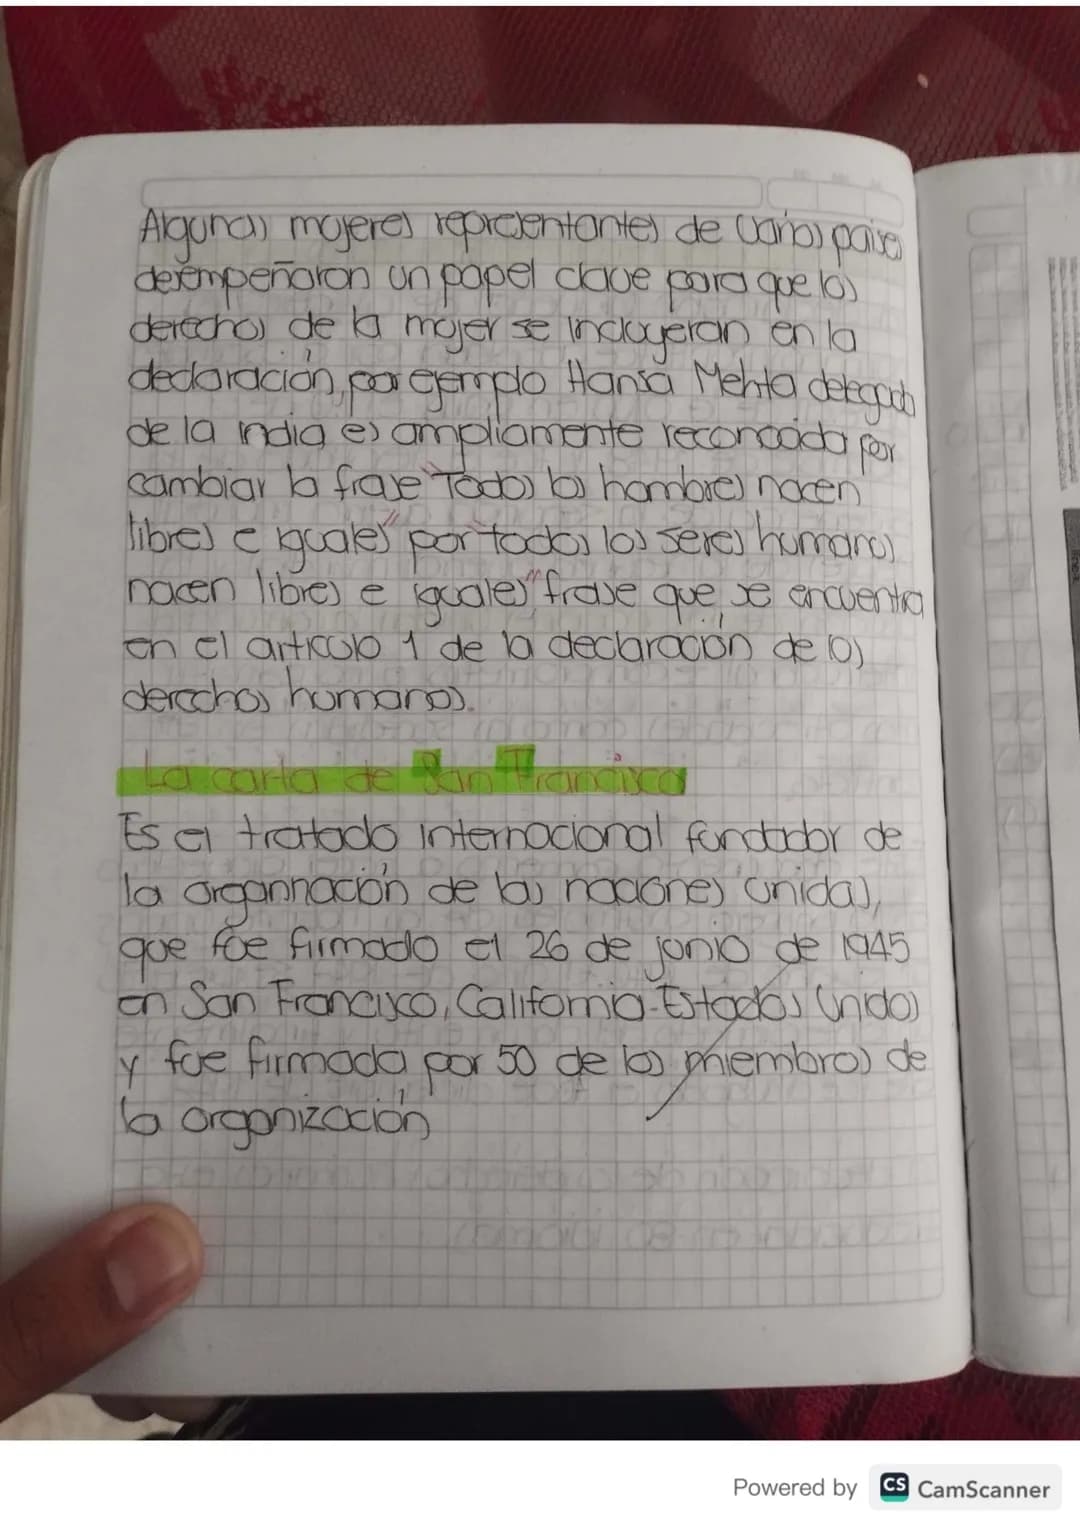 Algunas mujeres representantes de varios paises
desempeñaron un papel clave para que los
derechos de la mujer se incluyeran en la
declaración, por ejemplo Hansa Mehta delegada
de la india es ampliamente reconocida por
cambiar la frase "Todos los hombres nacen
libres e iguales" por "todos los seres humanos
nacen libres e iguales" frase que se encuentra
en el articulo 1 de la declaración de los
derechos humanos.
La carta de San Francisco
Es el tratado internacional fundador de
la organización de las naciones unidas,
que fue firmado el 26 de junio de 1945
en San Francisco, California-Estados Unidos
y fue firmada por 50 de los miembros de
la organización
Powered by CS CamScanner